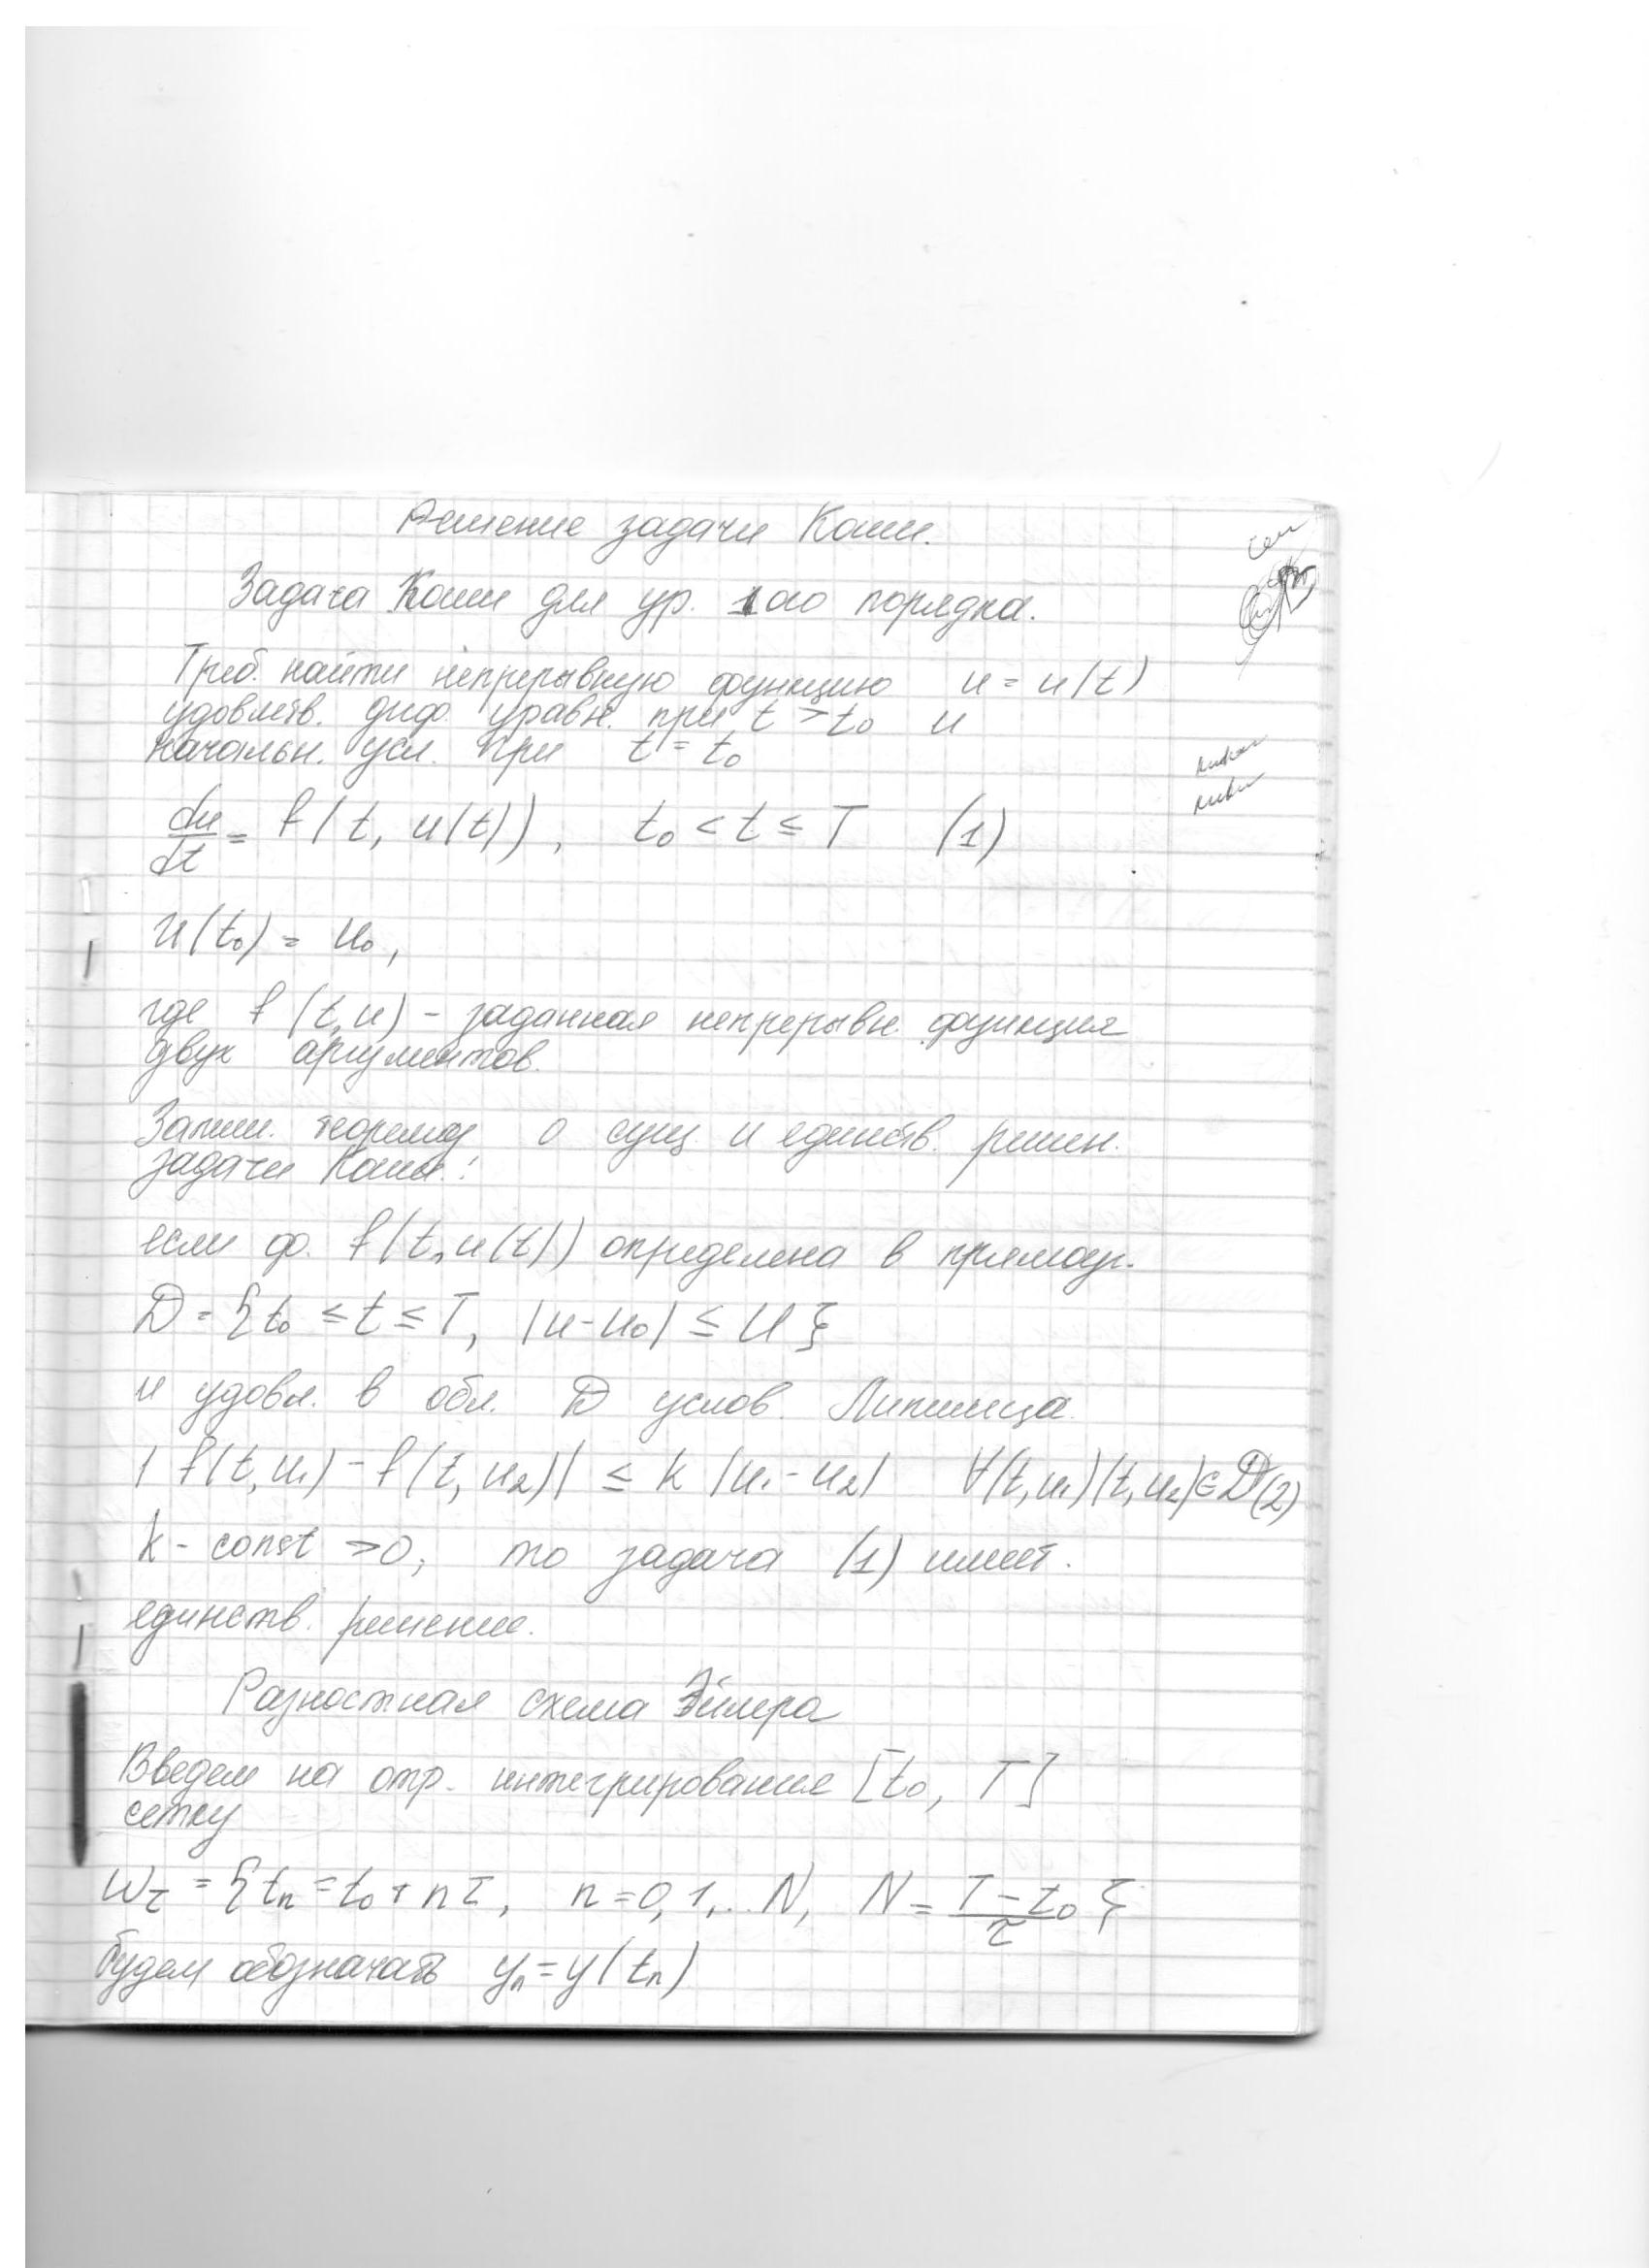 Решение задачи Коши.
Задача Коши для ур. 1ого порядка.
Треб. найти непрерывную функцию u = u(t)
удовлетв. диф. уравн. при t > t₀ и
начальн. усл. при t = t₀
du/dt = f(t, u(t)), t₀ < t ≤ T (1)
u(t₀) = u₀,
где f(t,u) - заданная непрерывн. функция
двух аргументов.
Запиш. теорему о сущ. и единств. решен.
задачи Коши:
если ф. f(t, u(t)) определена в прямоуг.
D = {t₀ ≤ t ≤ T, |u - u₀| ≤ U}
и удовл. в обл. D услов. Липшица.
|f(t,u₁) - f(t,u₂)| ≤ k |u₁ - u₂| ∀(t,u₁)(t,u₂)∈D (2)
k - const > 0, то задача (1) имеет.
единств. решение.
Разностная схема Эйлера
Введем на отр. интегрирования [t₀, T]
сетку
ω_τ = {tₙ = t₀ + nτ, n = 0,1,.. N, N = (T - t₀)/τ}
будем обозначать yₙ = y(tₙ)